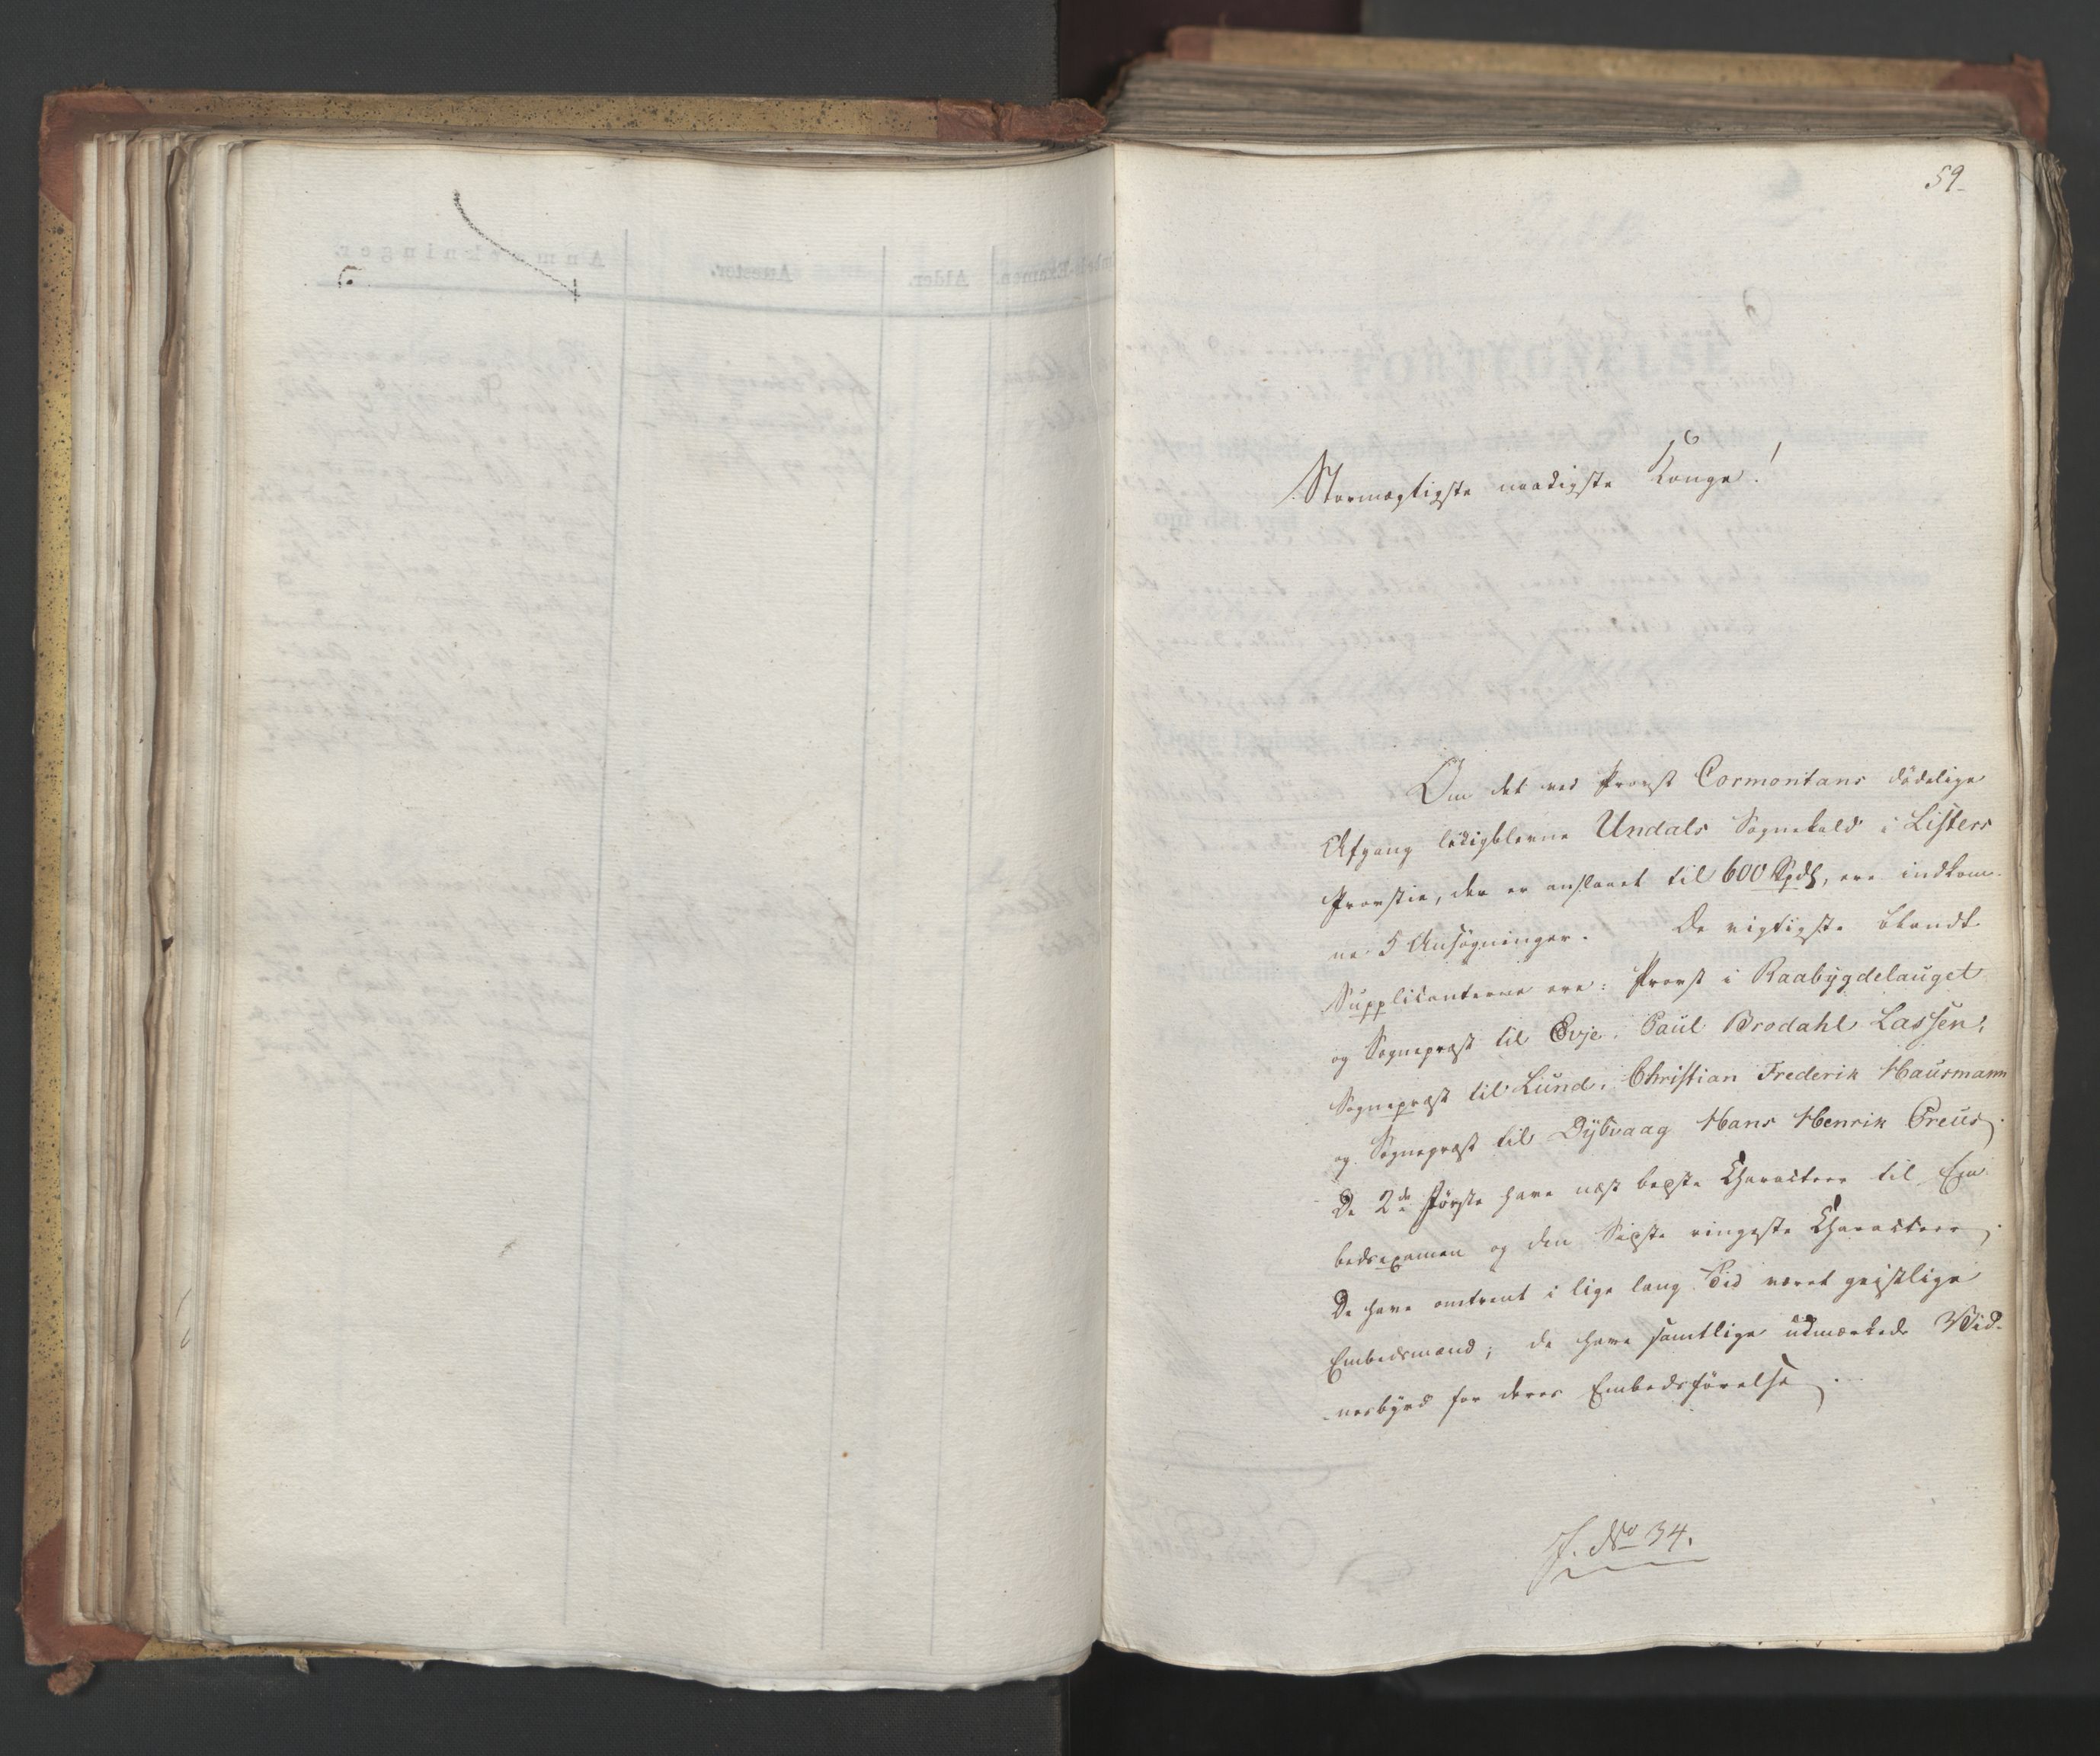 59.
Stormægtigste naadigste Konge!
Om det ved Provst Cormontans dødelige
Afgang ledigblevne Undals Sognekald i Listers
Provstie, der er anslaaet til 600 Spd, ere indkom-
ne 5 Ansøgninger. De vigtigste blandt
Supplicanterne ere: Provst i Raabygdelauget
og Sognepræst til Evje, Paul Brodahl Lassen,
Sognepræst til Lund, Christian Frederik Hausmann
og Sognepræst til Dybvaag Hans Henrik Preus.
De 2de Første have næst bedste Characteer til Em-
bedsexamen og den Sidste ringeste Characteer.
De have omtrent i lige lang Tid været geistlige
Embedsmænd; de have samtlige udmærkede Vid-
nesbyrd for deres Embedsførelse.
J. No 34.